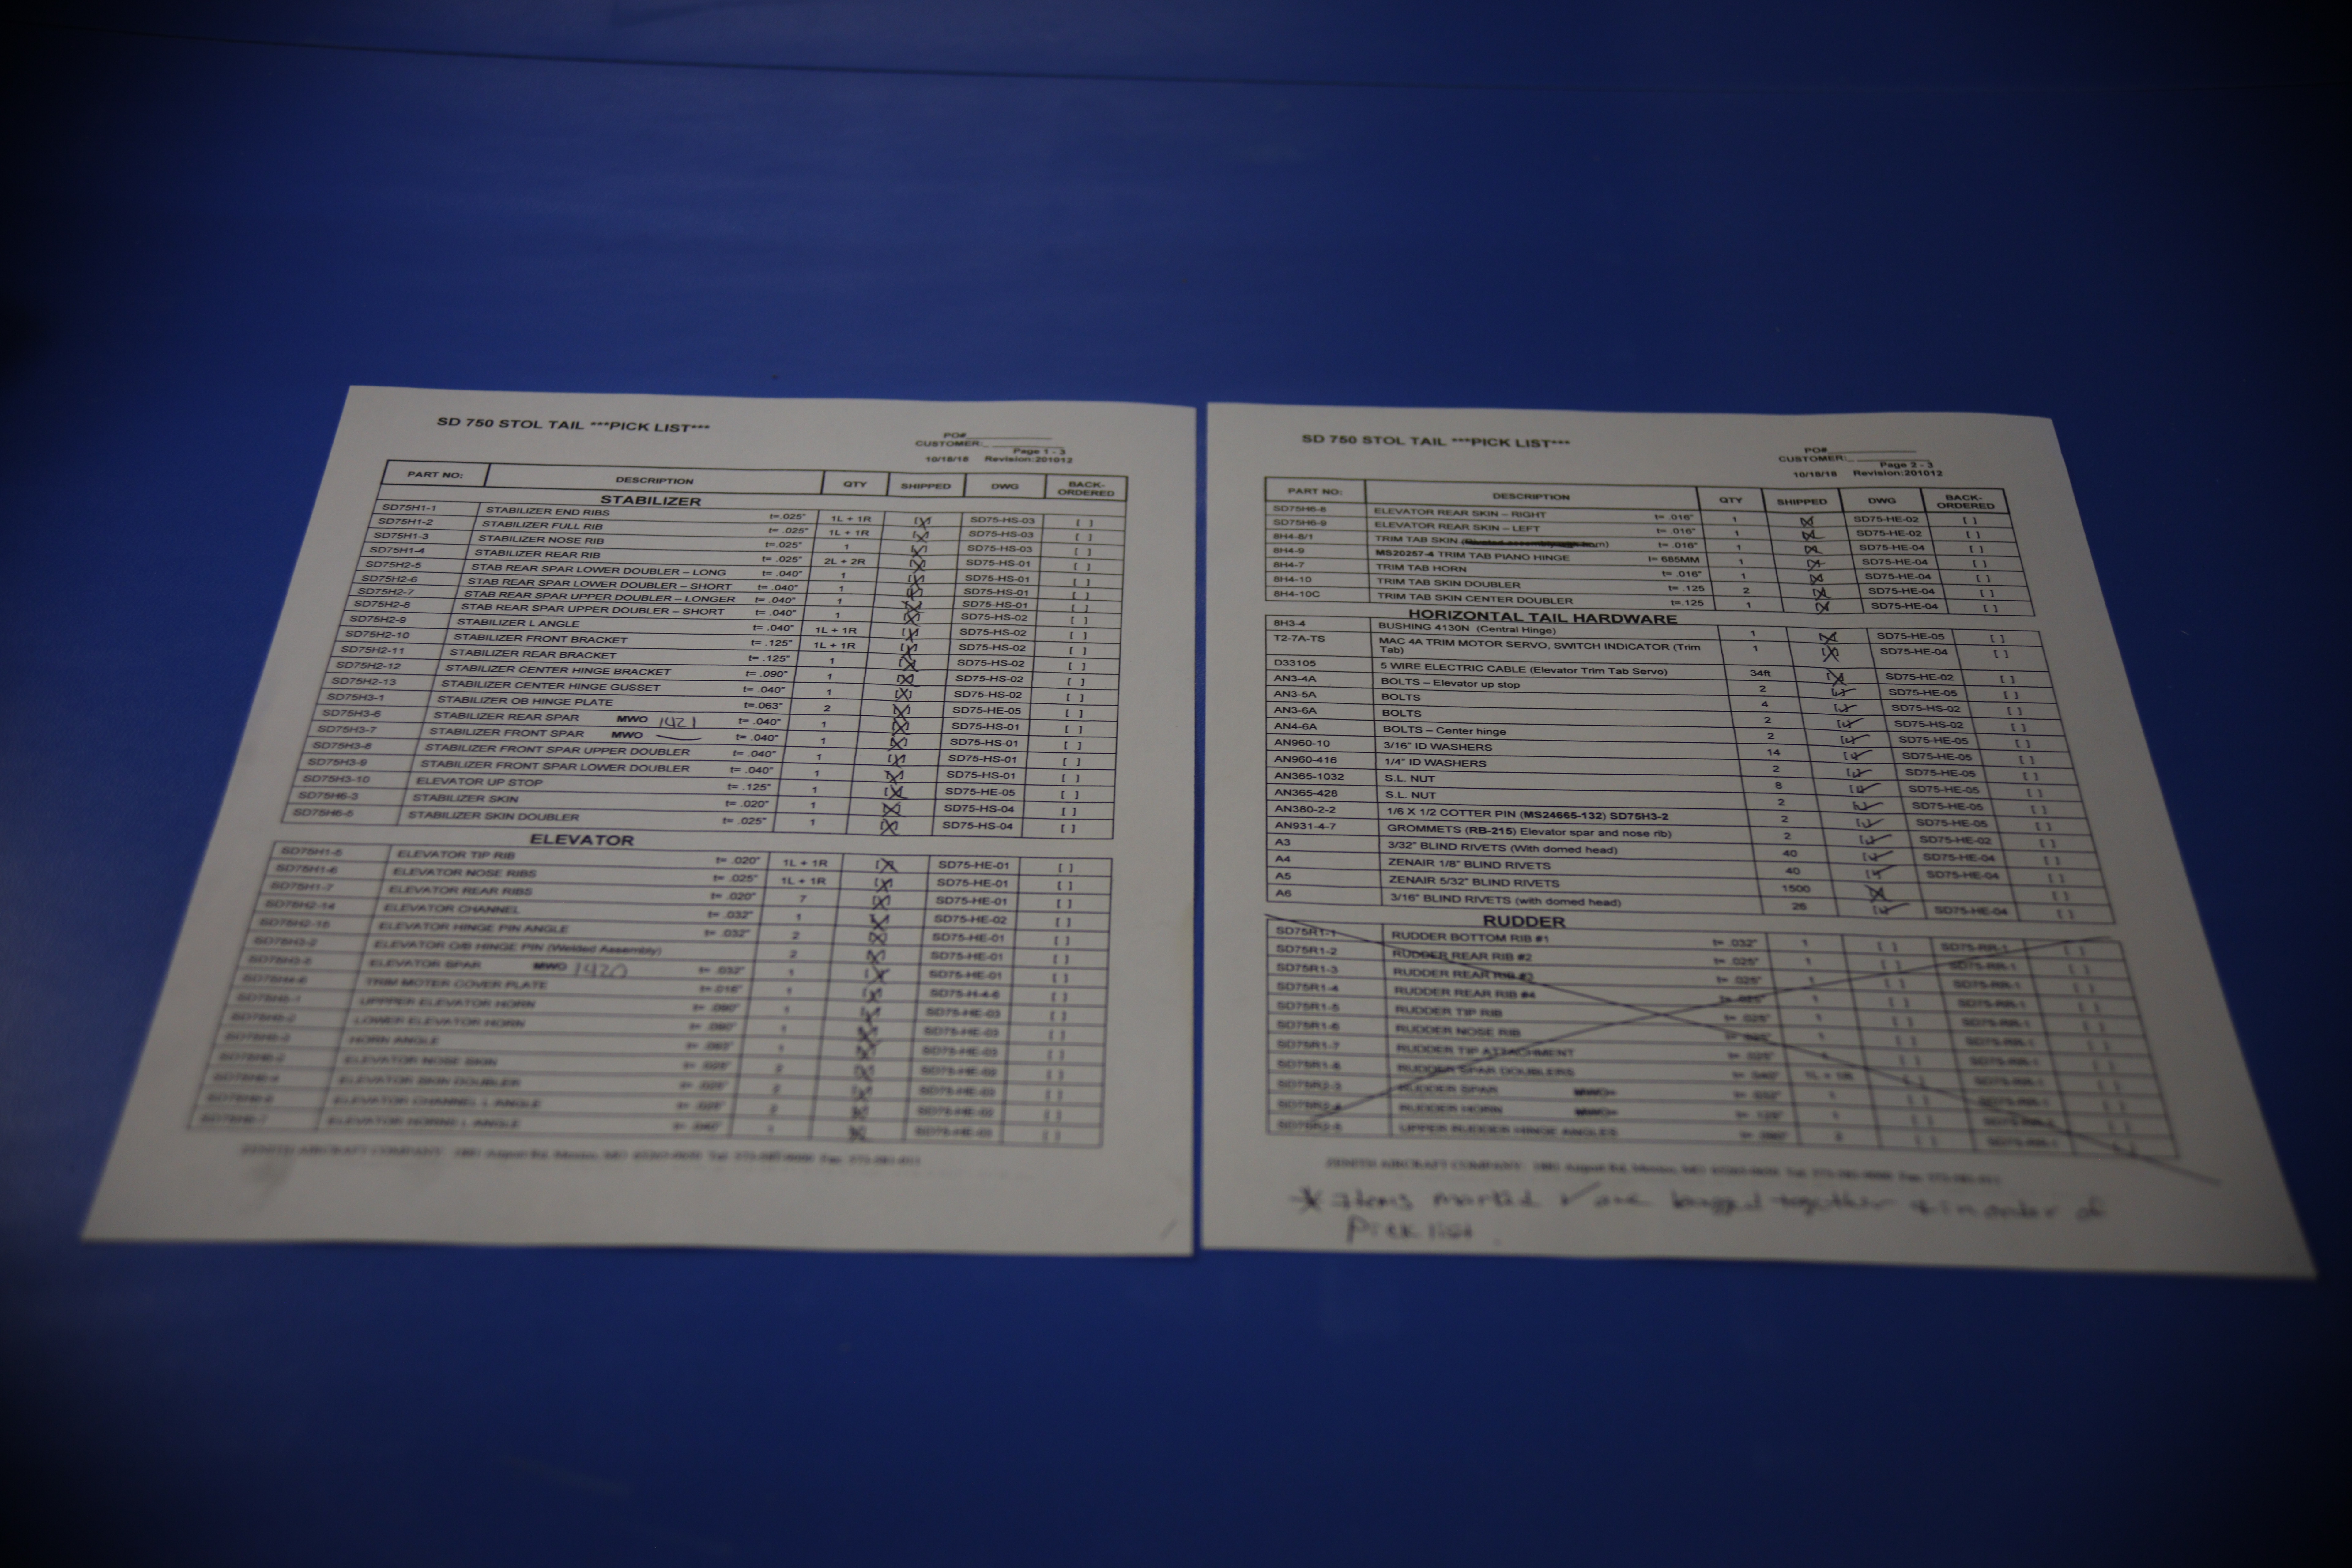 SD 750 STOL TAIL ***PICK LIST***
PO#
CUSTOMER:
Page 1 - 3
10/18/18 Revision:201012
PART NO: DESCRIPTION QTY SHIPPED DWG BACK-ORDERED
STABILIZER
SD75H1-1 STABILIZER END RIBS t=.025" 1L + 1R [X] SD75-HS-03 [ ]
SD75H1-2 STABILIZER FULL RIB t=.025" 1L + 1R [X] SD75-HS-03 [ ]
SD75H1-3 STABILIZER NOSE RIB t=.025" 1 [X] SD75-HS-03 [ ]
SD75H1-4 STABILIZER REAR RIB t=.025" 2L + 2R [X] SD75-HS-01 [ ]
SD75H2-5 STAB REAR SPAR LOWER DOUBLER – LONG t= .040" 1 [X] SD75-HS-01 [ ]
SD75H2-6 STAB REAR SPAR LOWER DOUBLER – SHORT t= .040" 1 [X] SD75-HS-01 [ ]
SD75H2-7 STAB REAR SPAR UPPER DOUBLER – LONGER t= .040" 1 [X] SD75-HS-01 [ ]
SD75H2-8 STAB REAR SPAR UPPER DOUBLER – SHORT t= .040" 1 [X] SD75-HS-02 [ ]
SD75H2-9 STABILIZER L ANGLE t= .040" 1L + 1R [X] SD75-HS-02 [ ]
SD75H2-10 STABILIZER FRONT BRACKET t= .125" 1L + 1R [X] SD75-HS-02 [ ]
SD75H2-11 STABILIZER REAR BRACKET t= .125" 1 [X] SD75-HS-02 [ ]
SD75H2-12 STABILIZER CENTER HINGE BRACKET t= .090" 1 [X] SD75-HS-02 [ ]
SD75H2-13 STABILIZER CENTER HINGE GUSSET t= .040" 1 [X] SD75-HS-02 [ ]
SD75H3-1 STABILIZER OB HINGE PLATE t=.063" 2 [X] SD75-HE-05 [ ]
SD75H3-6 STABILIZER REAR SPAR MWO 1421 t= .040" 1 [X] SD75-HS-01 [ ]
SD75H3-7 STABILIZER FRONT SPAR MWO t= .040" 1 [X] SD75-HS-01 [ ]
SD75H3-8 STABILIZER FRONT SPAR UPPER DOUBLER t= .040" 1 [X] SD75-HS-01 [ ]
SD75H3-9 STABILIZER FRONT SPAR LOWER DOUBLER t= .040" 1 [X] SD75-HS-01 [ ]
SD75H3-10 ELEVATOR UP STOP t= .125" 1 [X] SD75-HE-05 [ ]
SD75H6-3 STABILIZER SKIN t= .020" 1 [X] SD75-HS-04 [ ]
SD75H6-5 STABILIZER SKIN DOUBLER t= .025" 1 [X] SD75-HS-04 [ ]
ELEVATOR
SD75H1-5 ELEVATOR TIP RIB t= .020" 1L + 1R [X] SD75-HE-01 [ ]
SD75H1-6 ELEVATOR NOSE RIBS t= .025" 1L + 1R [X] SD75-HE-01 [ ]
SD75H1-7 ELEVATOR REAR RIBS t= .020" 7 [X] SD75-HE-01 [ ]
SD75H2-14 ELEVATOR CHANNEL t= .032" 1 [X] SD75-HE-02 [ ]
SD75H2-15 ELEVATOR HINGE PIN ANGLE t= .032" 2 [X] SD75-HE-01 [ ]
SD75H3-2 ELEVATOR O/B HINGE PIN (Welded Assembly) 2 [X] SD75-HE-01 [ ]
SD75H3-5 ELEVATOR SPAR MWO 1420 t= .032" 1 [X] SD75-HE-01 [ ]
TRIM MOTER COVER PLATE t=.016" 1 [X] SD75-H-4-6 [ ]
UPPPER ELEVATOR HORN t= .090" 1 [X] SD75-HE-03 [ ]
LOWER ELEVATOR HORN t= .090" 1 [X] SD75-HE-03 [ ]
HORN ANGLE 1 [X] SD75-HE-03 [ ]
ELEVATOR NOSE SKIN 2 [X] [ ]
ELEVATOR SKIN DOUBLER 2 [X] [ ]
ELEVATOR CHANNEL L ANGLE 2 [X] [ ]
ELEVATOR HORNE L ANGLE 1 [X] [ ]
ZENITH AIRCRAFT COMPANY
SD 750 STOL TAIL ***PICK LIST***
PO#
CUSTOMER:
Page 2 - 3
10/18/18 Revision:201012
PART NO: DESCRIPTION QTY SHIPPED DWG BACK-ORDERED
SD75H6-8 ELEVATOR REAR SKIN – RIGHT t= .016" 1 [X] SD75-HE-02 [ ]
SD75H6-9 ELEVATOR REAR SKIN – LEFT t= .016" 1 [X] SD75-HE-02 [ ]
8H4-8/1 TRIM TAB SKIN t= .016" 1 [X] SD75-HE-04 [ ]
8H4-9 MS20257-4 TRIM TAB PIANO HINGE t= 685MM 1 [X] SD75-HE-04 [ ]
8H4-7 TRIM TAB HORN t= .016" 1 [X] SD75-HE-04 [ ]
8H4-10 TRIM TAB SKIN DOUBLER t= .125 2 [X] SD75-HE-04 [ ]
8H4-10C TRIM TAB SKIN CENTER DOUBLER t=.125 1 [X] SD75-HE-04 [ ]
HORIZONTAL TAIL HARDWARE
8H3-4 BUSHING 4130N (Central Hinge) 1 [X] SD75-HE-05 [ ]
T2-7A-TS MAC 4A TRIM MOTOR SERVO, SWITCH INDICATOR (Trim Tab) 1 [X] SD75-HE-04 [ ]
D33105 5 WIRE ELECTRIC CABLE (Elevator Trim Tab Servo) 34ft [X] SD75-HE-02 [ ]
AN3-4A BOLTS – Elevator up stop 2 [✓] SD75-HE-05 [ ]
AN3-5A BOLTS 4 [✓] SD75-HS-02 [ ]
AN3-6A BOLTS 2 [✓] SD75-HS-02 [ ]
AN4-6A BOLTS – Center hinge 2 [✓] SD75-HE-05 [ ]
AN960-10 3/16" ID WASHERS 14 [✓] SD75-HE-05 [ ]
AN960-416 1/4" ID WASHERS 2 [✓] SD75-HE-05 [ ]
AN365-1032 S.L. NUT 8 [✓] SD75-HE-05 [ ]
AN365-428 S.L. NUT 2 [✓] SD75-HE-05 [ ]
AN380-2-2 1/6 X 1/2 COTTER PIN (MS24665-132) SD75H3-2 2 [✓] SD75-HE-05 [ ]
AN931-4-7 GROMMETS (RB-215) Elevator spar and nose rib) 2 [✓] SD75-HE-02 [ ]
A3 3/32" BLIND RIVETS (With domed head) 40 [✓] SD75-HE-04 [ ]
A4 ZENAIR 1/8" BLIND RIVETS 40 [✓] SD75-HE-04 [ ]
A5 ZENAIR 5/32" BLIND RIVETS 1500 [X] [ ]
A6 3/16" BLIND RIVETS (with domed head) 26 [✓] SD75-HE-04 [ ]
RUDDER
SD75R1-1 RUDDER BOTTOM RIB #1 t= .032" 1 [ ] SD75-RR-1 [ ]
SD75R1-2 RUDDER REAR RIB #2 t= .025" 1 [ ] SD75-RR-1 [ ]
SD75R1-3 RUDDER REAR RIB #3 t= .025" 1 [ ] SD75-RR-1 [ ]
SD75R1-4 RUDDER REAR RIB #4 t= .025" 1 [ ] SD75-RR-1 [ ]
SD75R1-5 RUDDER TIP RIB t= .025" 1 [ ] SD75-RR-1 [ ]
SD75R1-6 RUDDER NOSE RIB 1 [ ] SD75-RR-1 [ ]
SD75R1-7 RUDDER TIP ATTACHMENT t= .025" 1 [ ] SD75-RR-1 [ ]
SD75R1-8 RUDDER SPAR DOUBLERS 1L + 1R [ ] SD75-RR-1 [ ]
SD75R2-3 RUDDER SPAR MWO# 1 [ ] SD75-RR-1 [ ]
SD75R2-4 RUDDER HORN MWO# 1 [ ] [ ]
SD75R2-5 UPPER RUDDER HINGE ANGLES [ ] SD75-RR-1 [ ]
ZENITH AIRCRAFT COMPANY
* Items marked ✓ are bagged together & in order of
Pick list